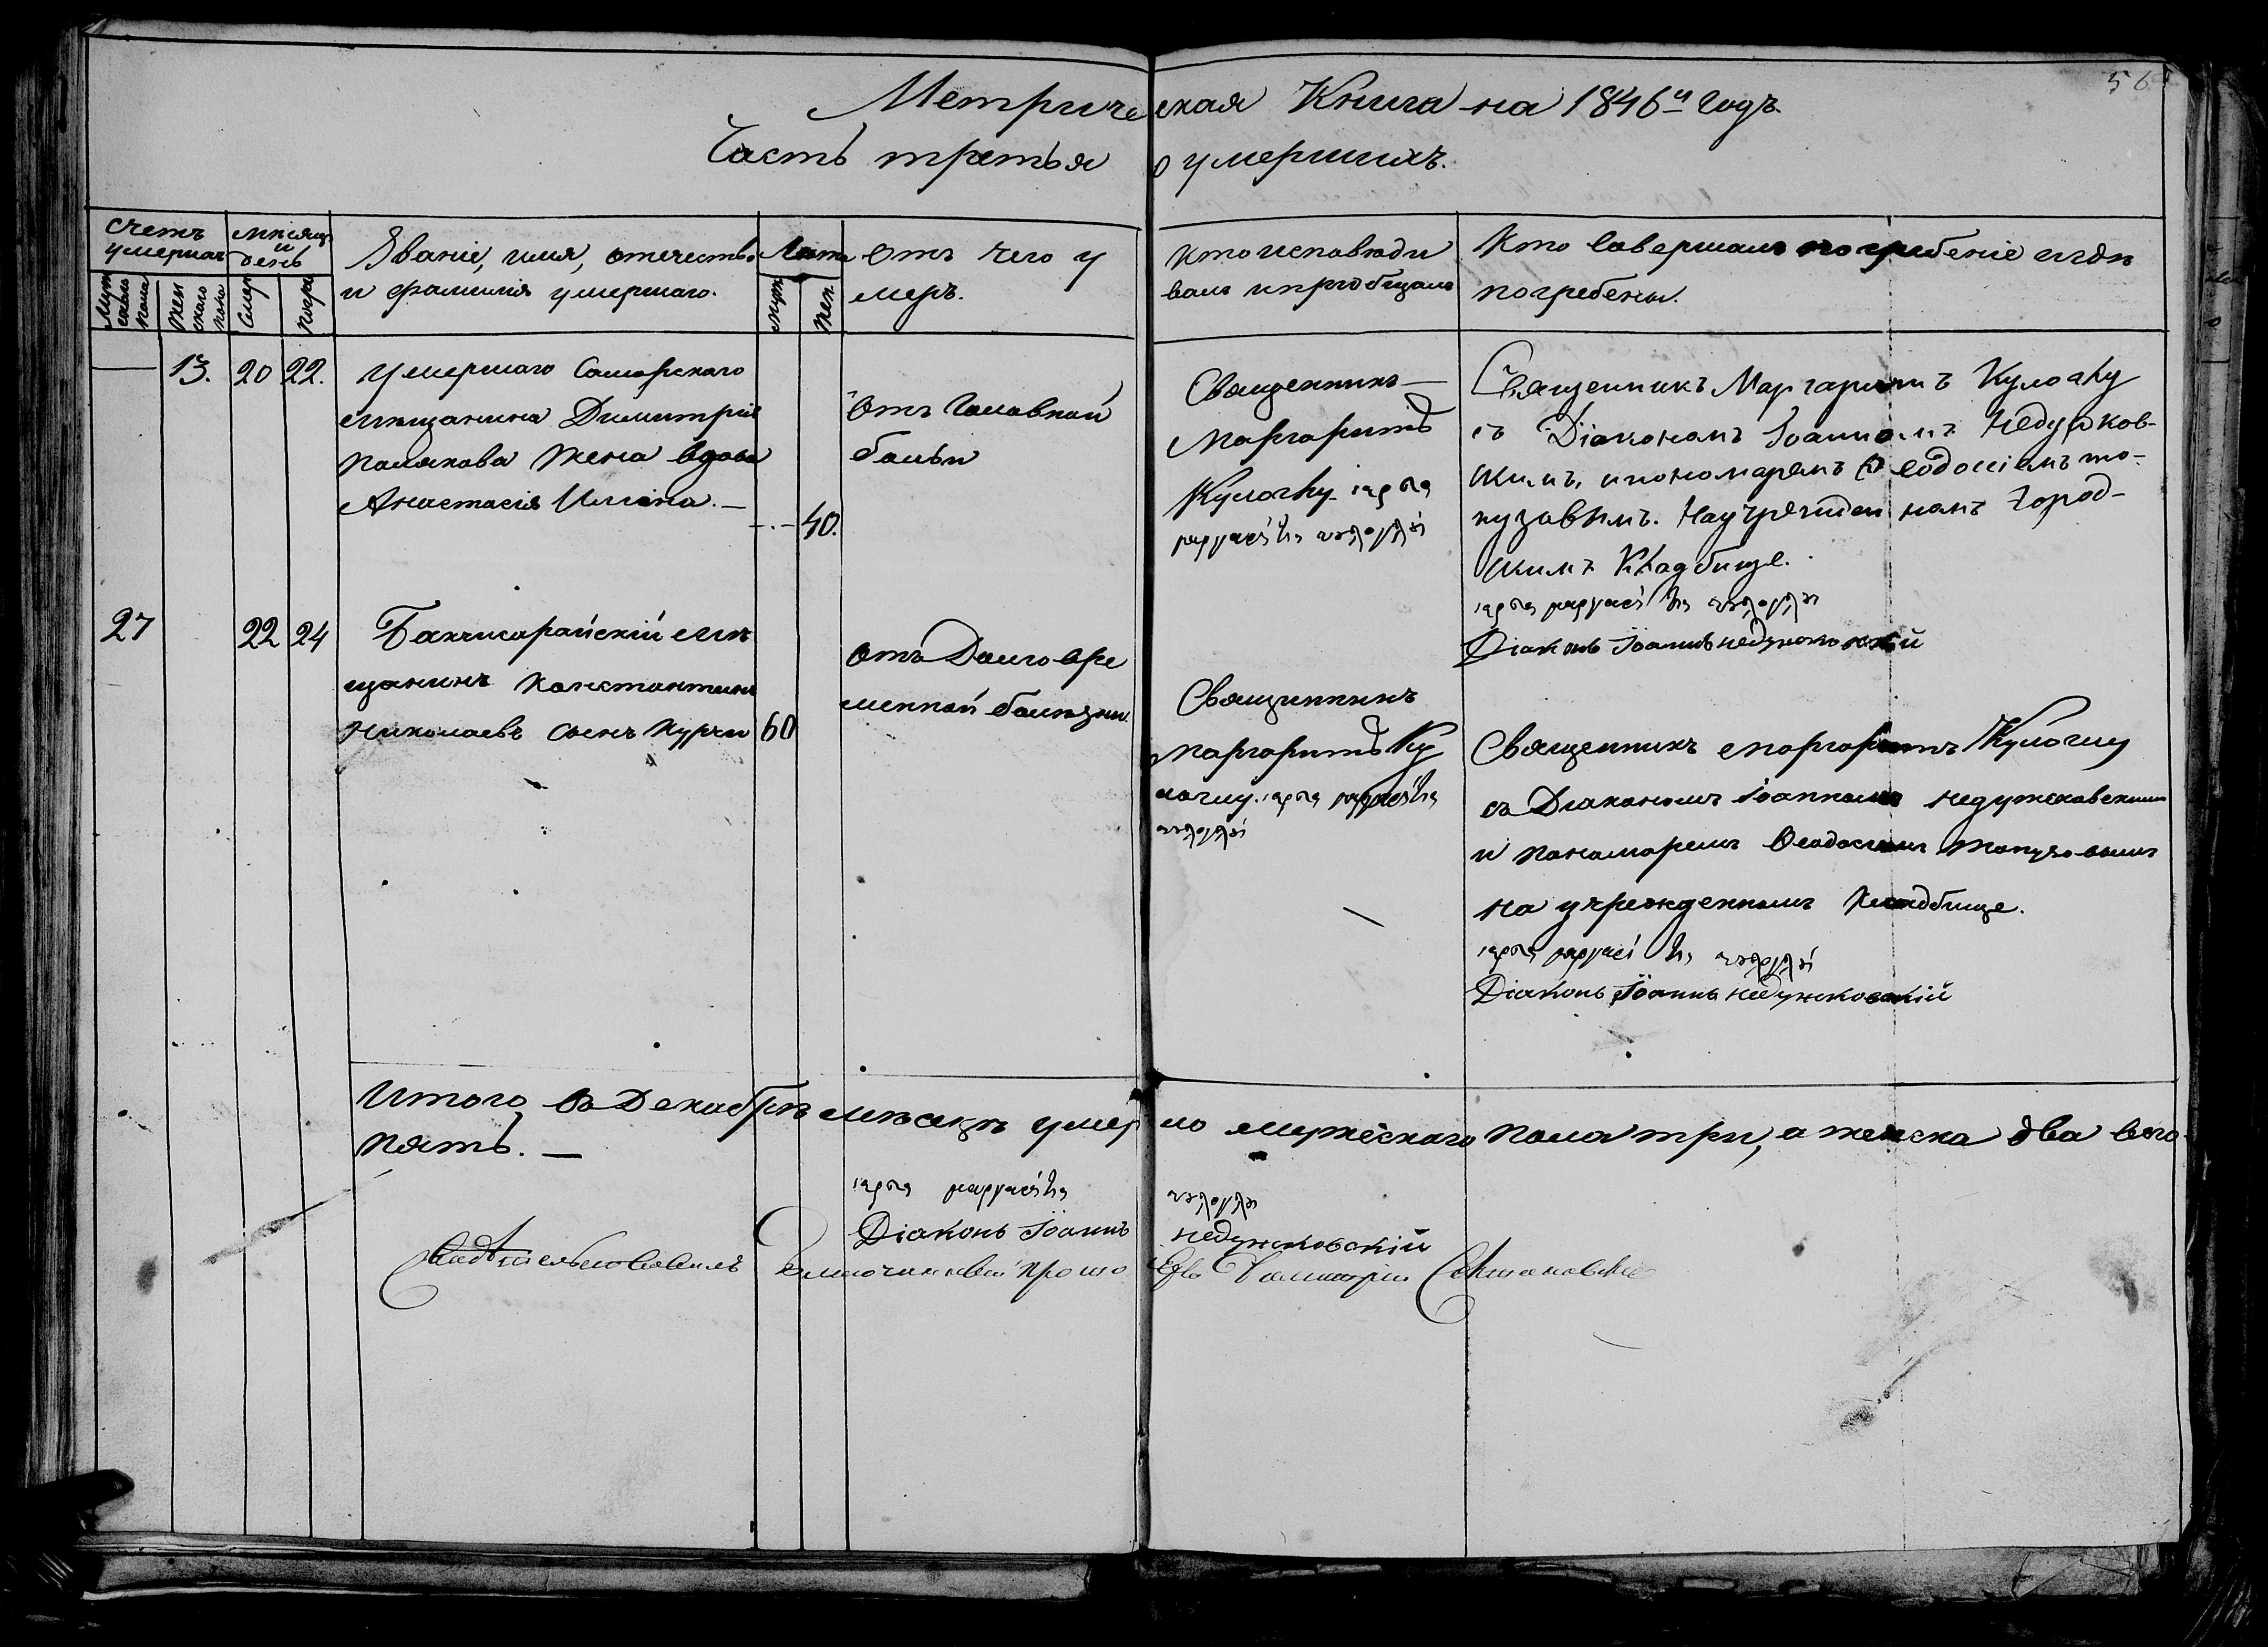 56
Метрическая Книга на 1846й годъ.
Часть третья о умершихъ.
Счетъ умершихъ
Мужескаго пола
Женскаго пола
Мѣсяцъ и день
Смер
Погре
Званіе, имя, отечество
и фамилія умершаго.
Лѣта
Муж
Жен.
Отъ чего у
меръ.
Кто исповѣды
валъ и пріобщалъ
Кто совершалъ погребеніе и гдѣ
погребены.
13. 20 22.
умершаго Самарскаго
мѣщанина Димитрія
Полякова жена вдова
Анастасія Иліина. —
40.
Отъ головной
больи
Священникъ —
Маргаритъ
Кулочку
Священникъ Маргаритъ Кулочку
съ Діакономъ Іоанномъ Недужков-
скимъ, и пономаремъ Ѳеодосіемъ то-
пузовымъ. На учрежденномъ город-
скимъ Кладбище.
Діаконъ Іоаннъ недужковскій
27 22 24
Бахчисарайскій мѣ
щанинъ Константинъ
Николаевъ сынъ Курчи
60
отъ Долговре
менной болѣзни
Священникъ
Маргаритъ Ку
лочку.
Священникъ Маргаритъ Кулочку
съ Діакономъ Іоанномъ недужковскимъ
и пономаремъ Ѳеодосіемъ топузовымъ
на учрежденномъ кладбище.
Діаконъ Іоаннъ недужковскій
Итого въ Декабрѣ мѣсяцѣ умерло мужескаго пола три, а женска два всего
пять. —
Діаконъ Іоаннъ недужковскій
Свидѣтельствовалъ Благочинный Прото